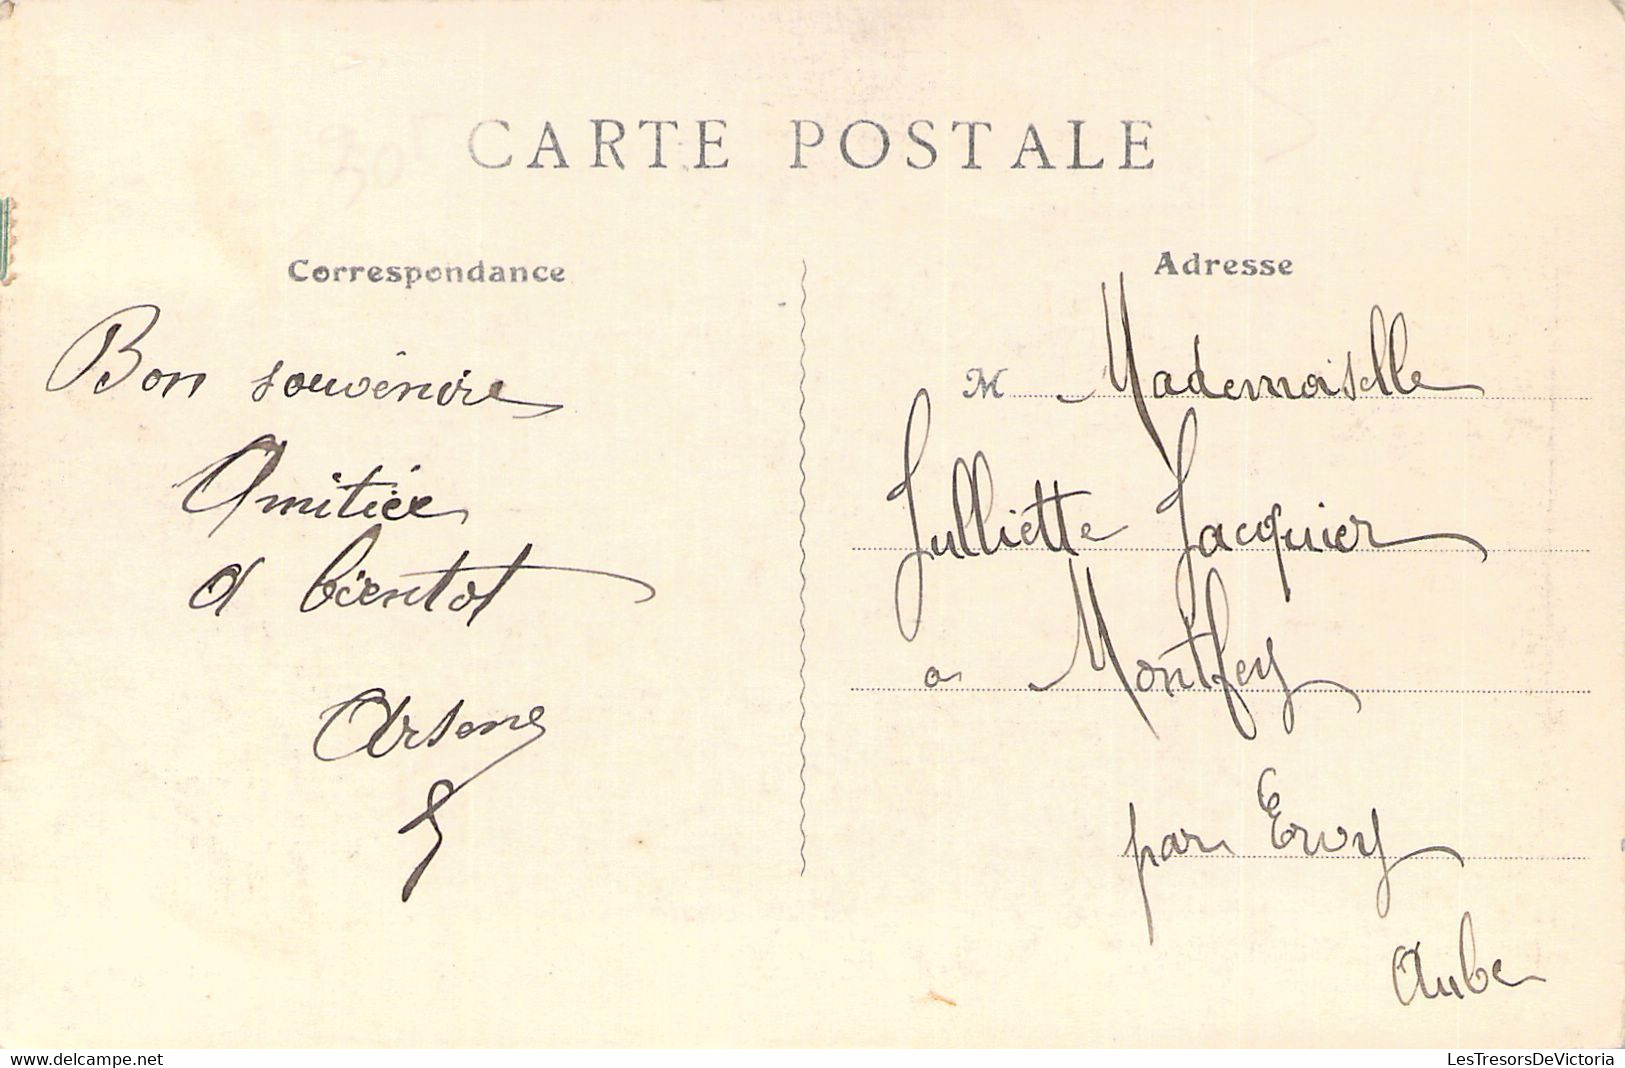 CARTE POSTALE
Correspondance
Bon souvenire
Amitiée
a bientot
Arsene
Adresse
M Mademoiselle
Julliette Jacquier
a Montfey
par Ervy
Aube
www.delcampe.net
LesTresorsDeVictoria